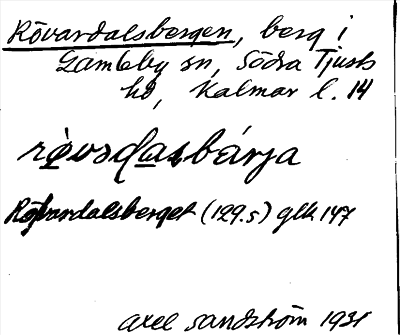 Rövardalsbergen, berg i
Gamleby sn, Södra Tjusts
hd, Kalmar l. 14
Rövardalsberget (129.5) glk 147
Axel Sandström 1931